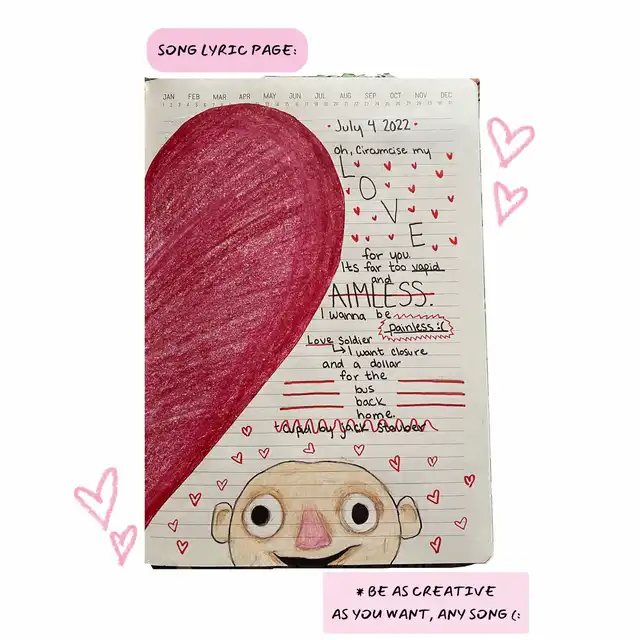 SONG LYRIC PAGE:
JAN FEB MAR APR MAY JUN JUL AUG SEP OCT NOV DEC
• July 4 2022 •
Oh, Circumcise my
LOVE
for you.
Its far too vapid
and
AIMLESS.
I wanna be
painless :(
Love soldier
↳ I want closure
and a dollar
for the
bus
back
home.
cupid by jack stauber
* BE AS CREATIVE
AS YOU WANT, ANY SONG (: